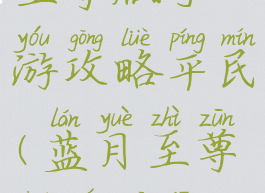 yóu gōng lüè píng mín
游攻略平民
lán yuè zhì zūn
(蓝月至尊